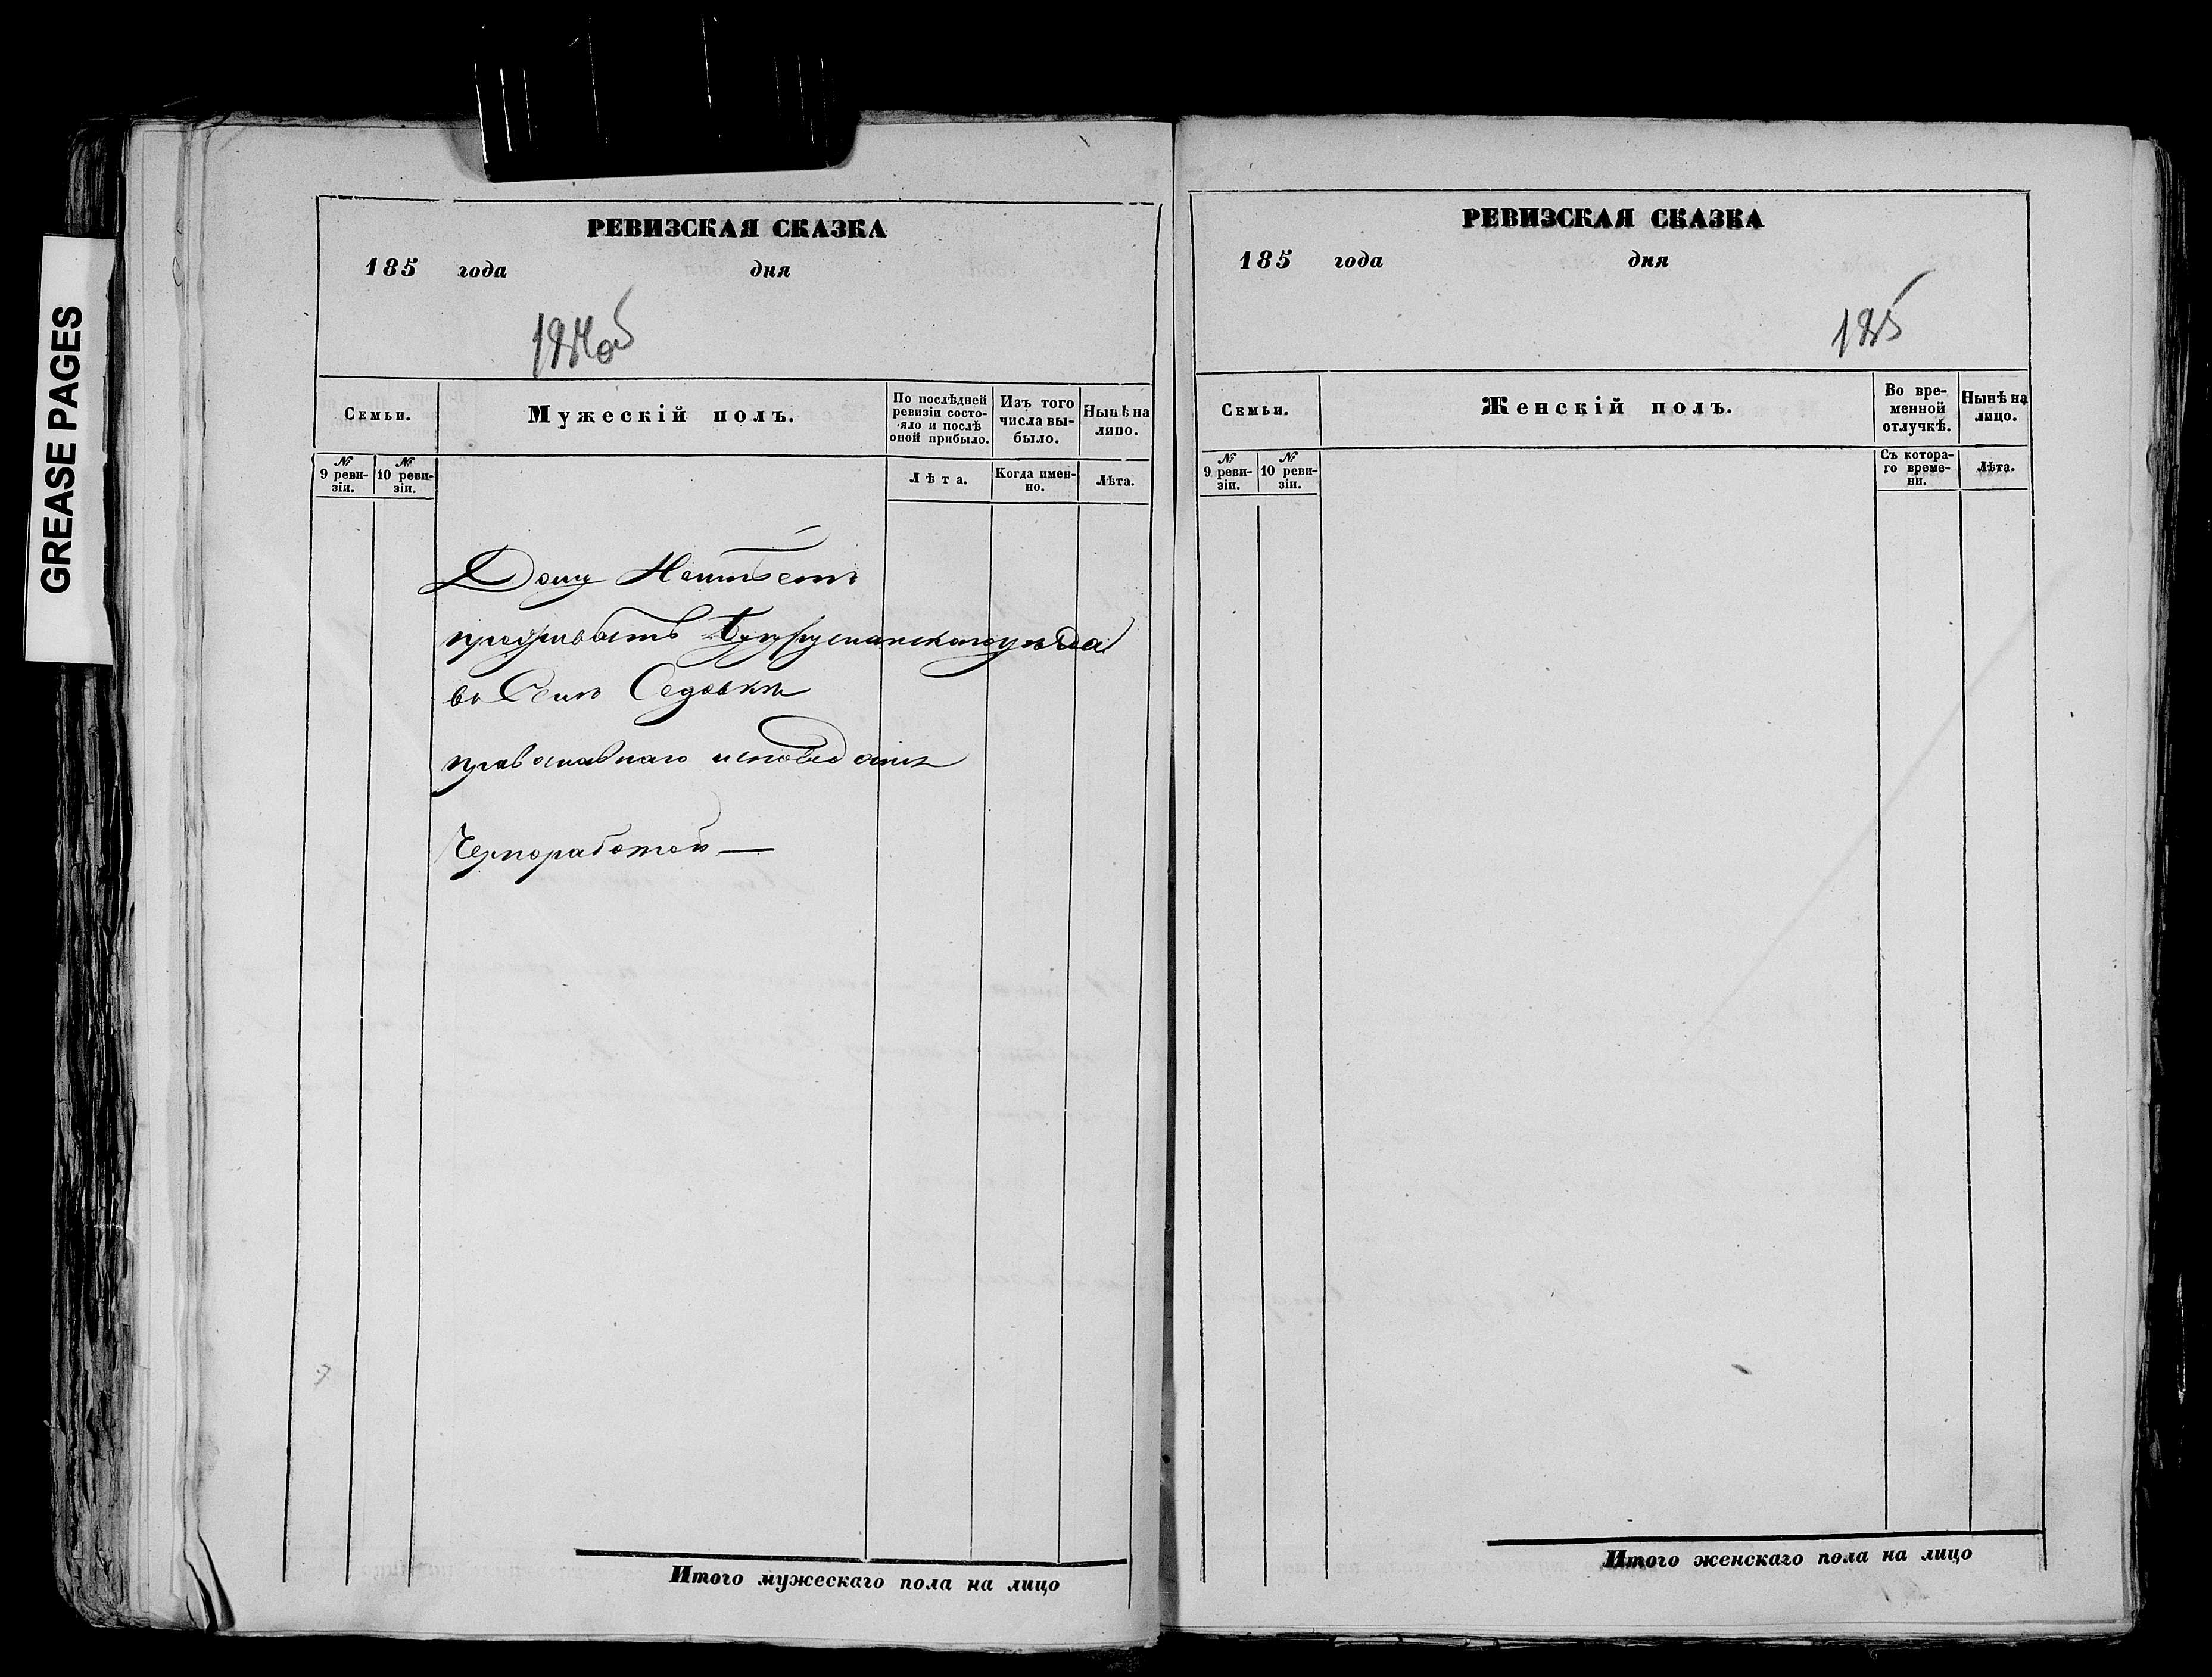 GREASE PAGES
РЕВИЗСКАЯ СКАЗКА
185 года дня
Семьи.
Мужескій полъ.
По послѣдней ревизіи состояло и послѣ оной прибыло.
Изъ того числа выбыло.
Нынѣ на лицо.
№ 9 ревизіи.
№ 10 ревизіи.
Лѣта.
Когда именно.
Лѣта.
Дому Неимѣетъ
проживаетъ Бугурусланскаго уѣзда
во Селѣ Седовкѣ
православнаго исповеданія
Черноработой —
Итого мужескаго пола на лицо
РЕВИЗСКАЯ СКАЗКА
185 года дня
185
Семьи.
Женскій полъ.
Во временной отлучкѣ.
Нынѣ на лицо.
№ 9 ревизіи.
№ 10 ревизіи.
Съ котораго времени.
Лѣта.
Итого женскаго пола на лицо